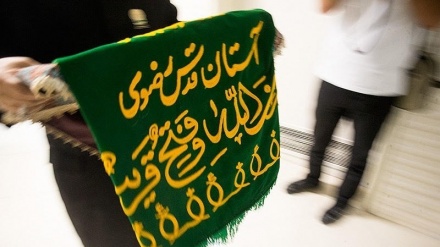 آستان قدس رضوی
اللّهِ وَ فَتْحٌ قَریب